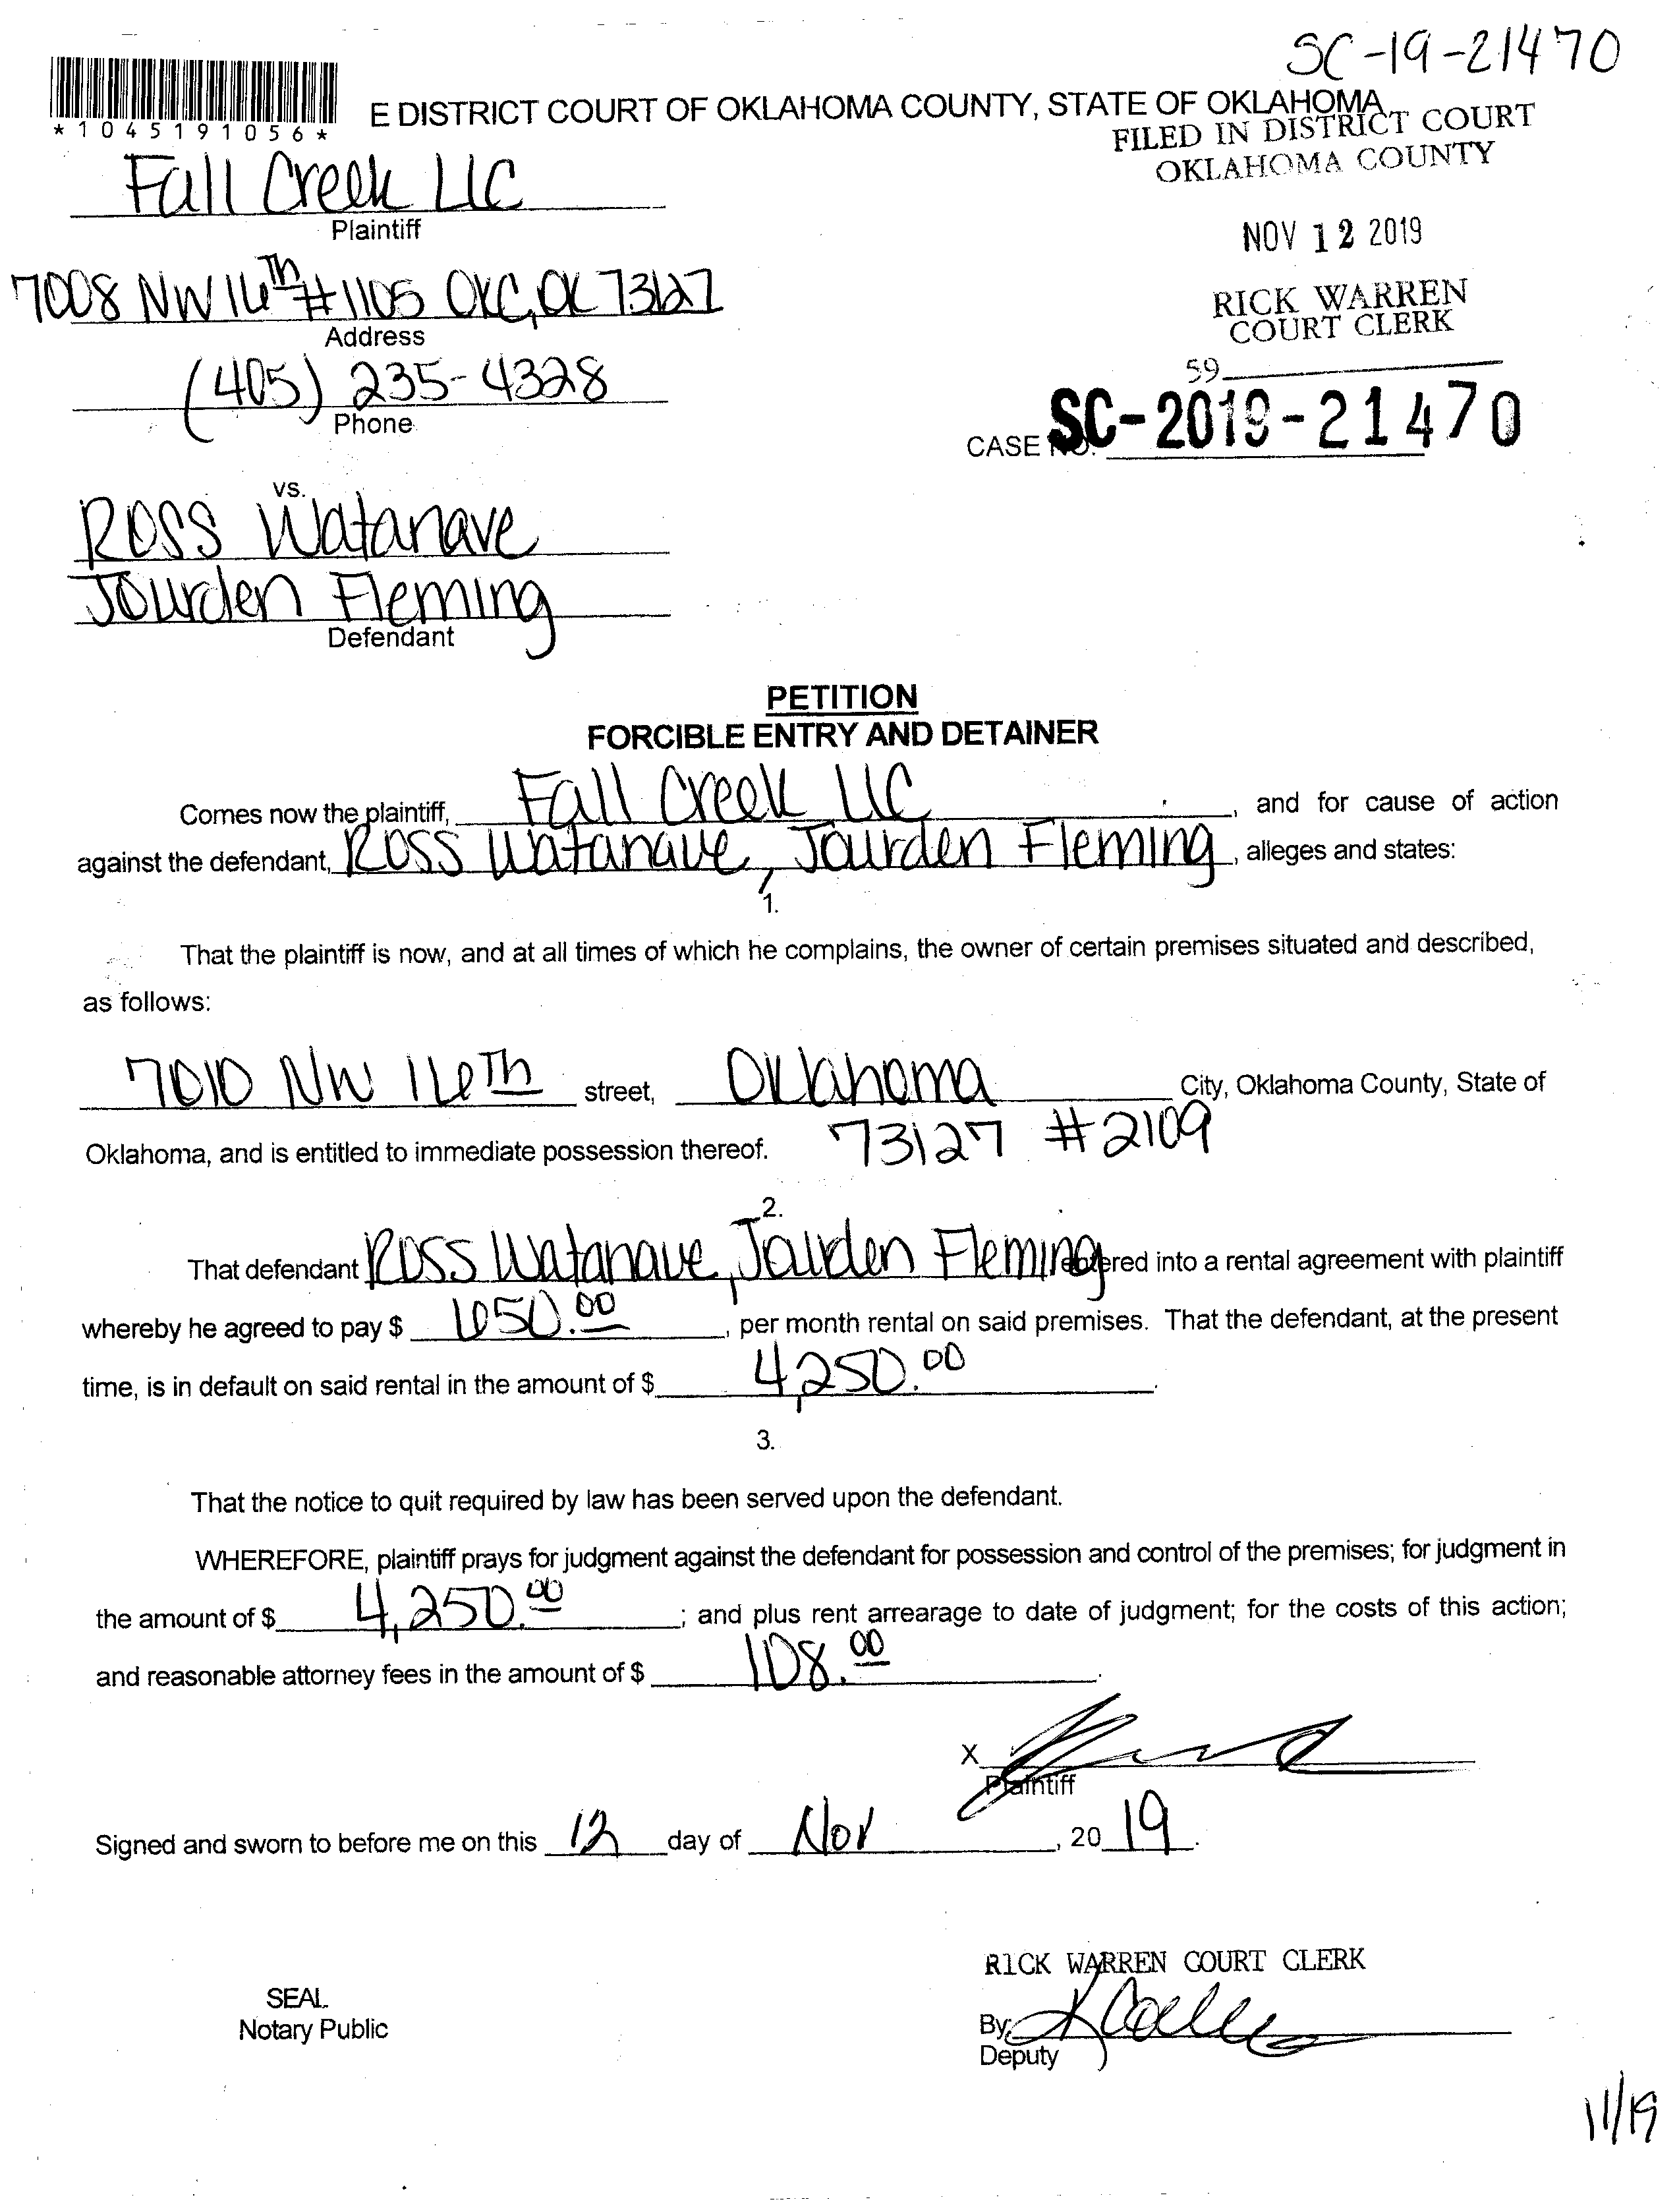 SC-19-21470
*1045191056*
E DISTRICT COURT OF OKLAHOMA COUNTY, STATE OF OKLAHOMA
FILED IN DISTRICT COURT
OKLAHOMA COUNTY
Fall Creek LLC
Plaintiff
NOV 12 2019
7008 NW 16th #1105 OKC, OK 73127
Address
RICK WARREN
COURT CLERK
(405) 235-4328
Phone
59
CASE NO. SC-2019-21470
vs.
Ross Watanave
Jourden Fleming
Defendant
PETITION
FORCIBLE ENTRY AND DETAINER
Comes now the plaintiff, Fall Creek LLC, and for cause of action
against the defendant, Ross Watanave, Jourden Fleming, alleges and states:
1.
That the plaintiff is now, and at all times of which he complains, the owner of certain premises situated and described,
as follows:
7010 NW 16Th street, Oklahoma City, Oklahoma County, State of
Oklahoma, and is entitled to immediate possession thereof. 73127 #2109
2.
That defendant Ross Watanave, Jourden Fleming entered into a rental agreement with plaintiff
whereby he agreed to pay $ 650.00, per month rental on said premises. That the defendant, at the present
time, is in default on said rental in the amount of $ 4,250.00.
3.
That the notice to quit required by law has been served upon the defendant.
WHEREFORE, plaintiff prays for judgment against the defendant for possession and control of the premises; for judgment in
the amount of $ 4,250.00; and plus rent arrearage to date of judgment; for the costs of this action;
and reasonable attorney fees in the amount of $ 108.00.
X
Plaintiff
Signed and sworn to before me on this 12 day of Nov, 2019.
RICK WARREN COURT CLERK
SEAL
Notary Public
By:
Deputy
11/19